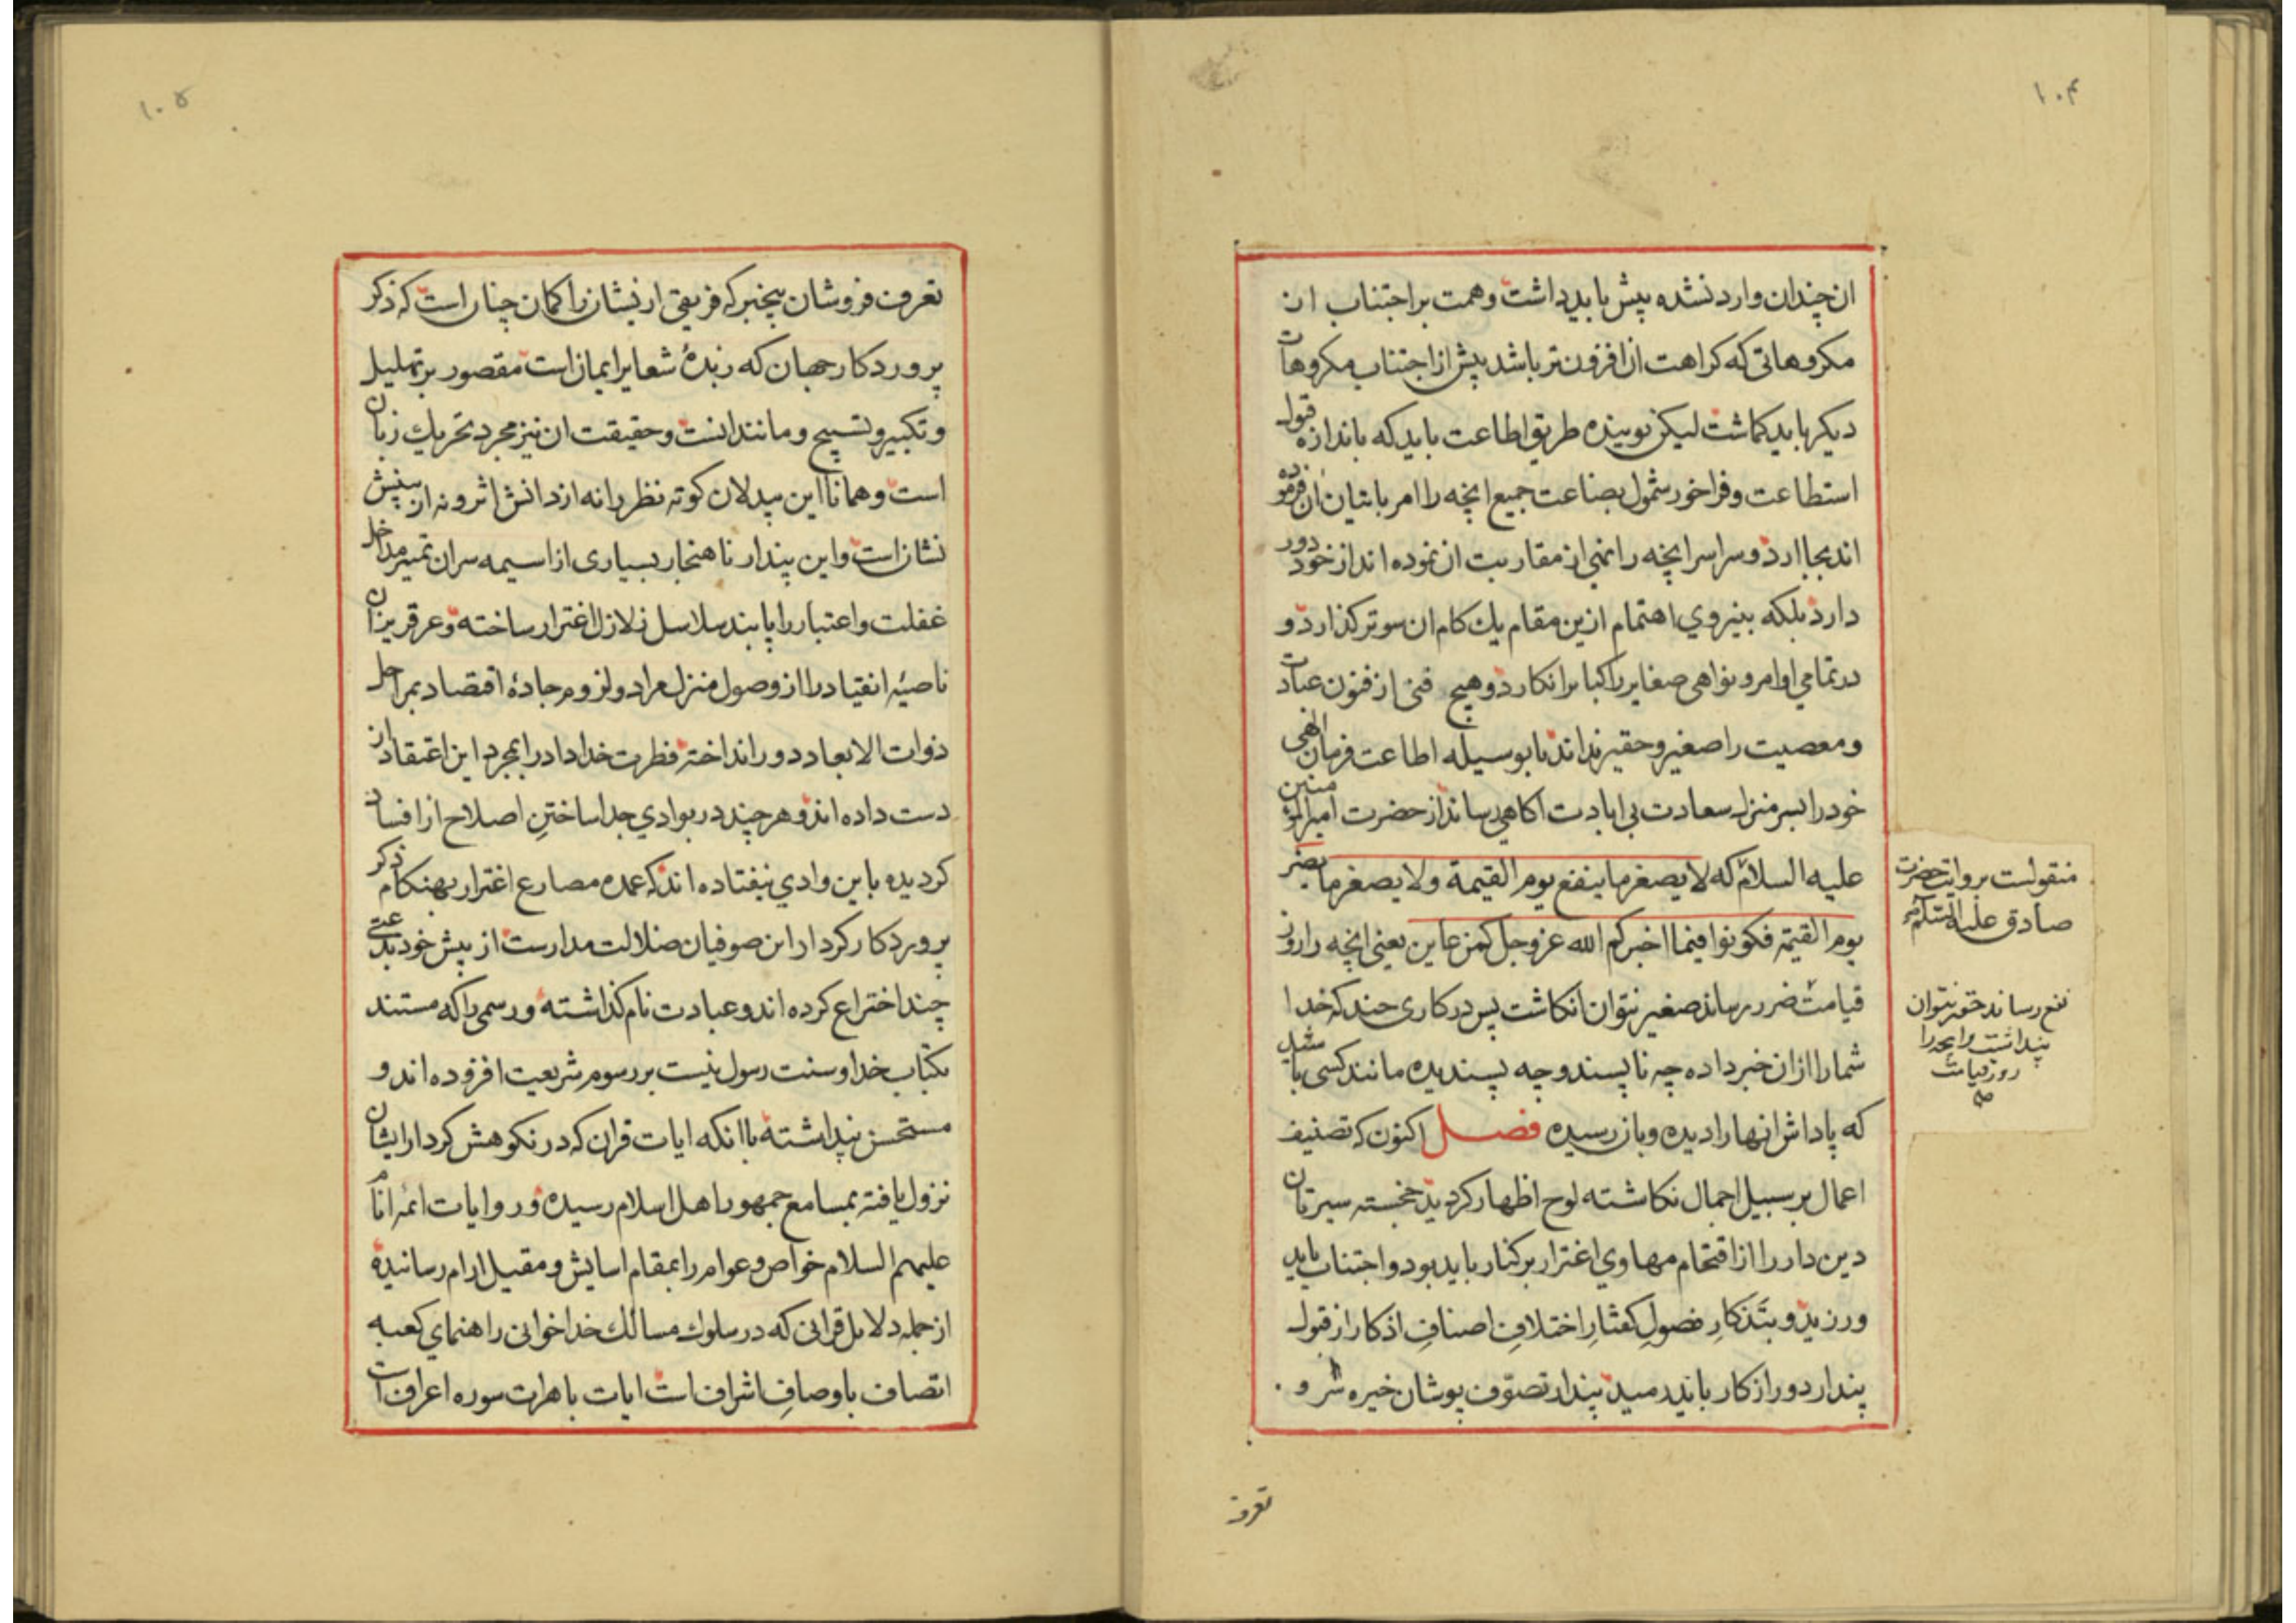 ۱۰۴
ان چندان وارد نشده پیش باید داشت و همت بر اجتناب ان
مکروهاتی که کراهت ان افزون تر باشد پیش از اجتناب مکروهات
دیکر باید کماشت لیکن نوینده طریق اطاعت باید که باندازه قبول
استطاعت و فراخور شمول بضاعت جمیع انچه را امر باتیان ان فرموده
اند بجا ارد و سراسر انچه را نهی از مقاربت ان نموده اند از خود دور
دارد بلکه بنیروی اهتمام ازین مقام یك کام ان سوتر کذارد و
در تمامی اوامر و نواهی صغایر را کبایر انکارد و هیچ فنی از فنون عبادت
و معصیت را صغیر و حقیر نداند تا بوسیله اطاعت فرمان الهی
خود را بسر منزل سعادت بی ابادت اکاهی رساند از حضرت امیرالمؤمنین
علیه السلام که لا یصغر ما ینفع یوم القیمة ولا یصغر ما یضر
یوم القیمة فکونوا فیما اخبرکم الله عز وجل کمن عاین یعنی انچه را روز
قیامت ضرر رساند صغیر نتوان انکاشت پس در کاری چند که خدا
شما را ازان خبر داده چه ناپسند و چه پسندیده مانند کسی باشید
که پاداش انها را دیده و باز رسیده فصل اکنون که تصنیف
اعمال بر سبیل اجمال نکاشته لوح اظهار کردید خجسته سیرتان
دین دار را از اقتحام مهاوی اغترار بر کنار باید بود و اجتناب باید
ورزید و بتذکار فصول کفتار اختلاف اصناف اذکار از قبول
پندار دور از کار باید رمید پندار تصوّف پوشان خیره سر و
منقولست بروایت حضرت
صادق علیه السلام
نفع رساند حقیر نتوان
پنداشت و انچه را
روز قیامت
صح
تعرف
۱۰۵
تعرف فروشان بیخبر که فریقی از یشان را کمان چنان است که ذکر
پروردکار جهان که زبدهٔ شعایر ایمان است مقصور بر تهلیل
و تکبیر و تسبیح و مانند انست و حقیقت ان نیز مجرد تحریك زبان
است و همانا این بیدلان کوته نظر را نه از دانش اثر و نه از بینش
نشان است و این پندار ناهنجار بسیاری از اسیمه سران تمییز مداخل
غفلت و اعتبار را پابند سلاسل زلازل اغترار ساخته و عرق ریزان
ناصیهٔ انقیاد را از وصول منزل مراد و لزوم جادهٔ اقتصاد بمراحل
ذوات الابعاد دور انداخته فطرت خداداد را بمجرد این اعتقاد از
دست داده اند و هر چند در بوادی جدا ساختن اصلاح از افساد
کردیده باین وادی نیفتاده اند که عمده مصارع اغترار بهنکام ذکر
پروردکار کردار این صوفیان ضلالت مدارست از پیش خود بدعتی
چند اختراع کرده اند و عبادت نام کذاشته و رسمی را که مستند
بکتاب خدا و سنت رسول نیست بر رسوم شریعت افزوده اند و
مستحسن پنداشته با انکه ایات قران که در نکوهش کردار ایشان
نزول یافته بمسامع جمهور اهل اسلام رسیده و روایات ائمه انام
علیهم السلام خواص و عوام را بمقام اسایش و مقیل ارام رسانیده
از جمله دلایل قرانی که در سلوك مسالك خدا خوانی راهنمای کعبه
اتصاف باوصاف اشراف است ایات باهرات سوره اعراف است